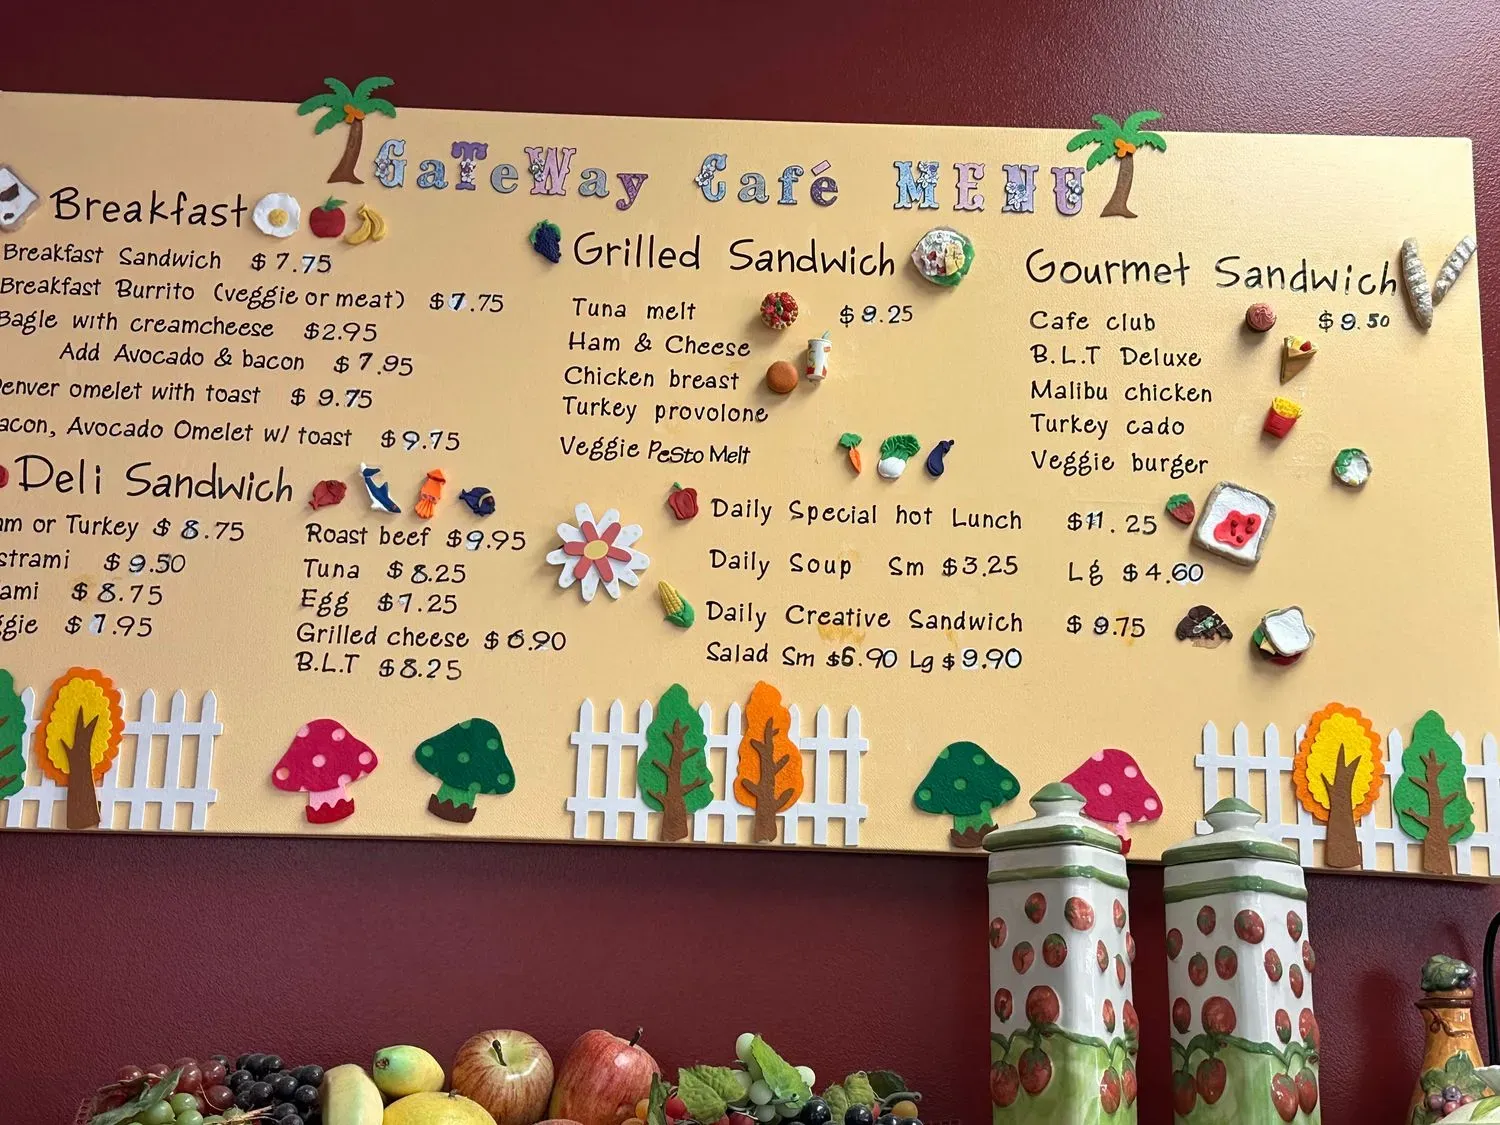 GaTeWay Café MENU
Breakfast
Breakfast Sandwich $7.75
Breakfast Burrito (veggie or meat) $7.75
Bagle with creamcheese $2.95
Add Avocado & bacon $7.95
enver omelet with toast $9.75
acon, Avocado Omelet w/ toast $9.75
Deli Sandwich
am or Turkey $8.75
strami $9.50
ami $8.75
ggie $7.95
Roast beef $9.95
Tuna $8.25
Egg $7.25
Grilled cheese $6.90
B.L.T $8.25
Grilled Sandwich
Tuna melt $9.25
Ham & Cheese
Chicken breast
Turkey provolone
Veggie Pesto Melt
Gourmet Sandwich
Cafe club $9.50
B.L.T Deluxe
Malibu chicken
Turkey cado
Veggie burger
Daily Special hot Lunch $11.25
Daily Soup Sm $3.25 Lg $4.60
Daily Creative Sandwich $9.75
Salad Sm $6.90 Lg $9.90